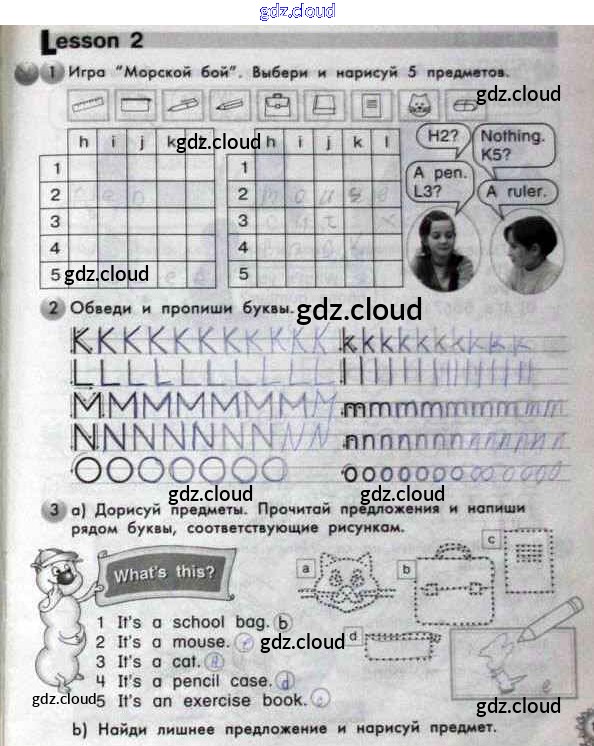 gdz.cloud
Lesson 2
1 Игра "Морской бой". Выбери и нарисуй 5 предметов.
gdz.cloud
h i j k gdz.cloud h i j k l
1 1
2 2 mouse
3 3
4 4
5 gdz.cloud 5
H2?
Nothing. K5?
A pen. L3?
A ruler.
2 Обведи и пропиши буквы. gdz.cloud
KKKKKKKKKKK kkkkkkkkkk
LLLLLLLLLL llllllllllll
MMMMMMMMM mmmmmmmmm
NNNNNNNNN nnnnnnnnnn
OOOOOOO ooooooooooo
gdz.cloud gdz.cloud
3 а) Дорисуй предметы. Прочитай предложения и напиши
рядом буквы, соответствующие рисункам.
What's this?
a b c
1 It's a school bag. b
2 It's a mouse. gdz.cloud d
3 It's a cat. a
4 It's a pencil case. d
gdz.cloud 5 It's an exercise book. c gdz.cloud
e
b) Найди лишнее предложение и нарисуй предмет.